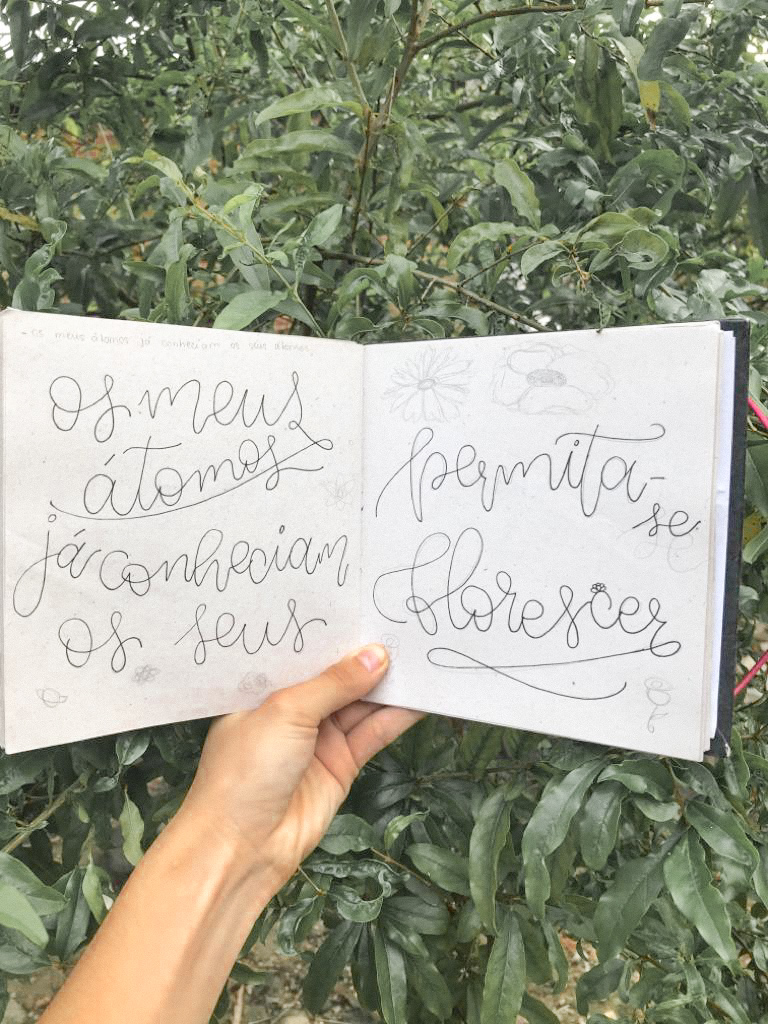 - os meus átomos já conheciam os seus átomos.
os meus
átomos
já conheciam
os seus
permita-
se
florescer